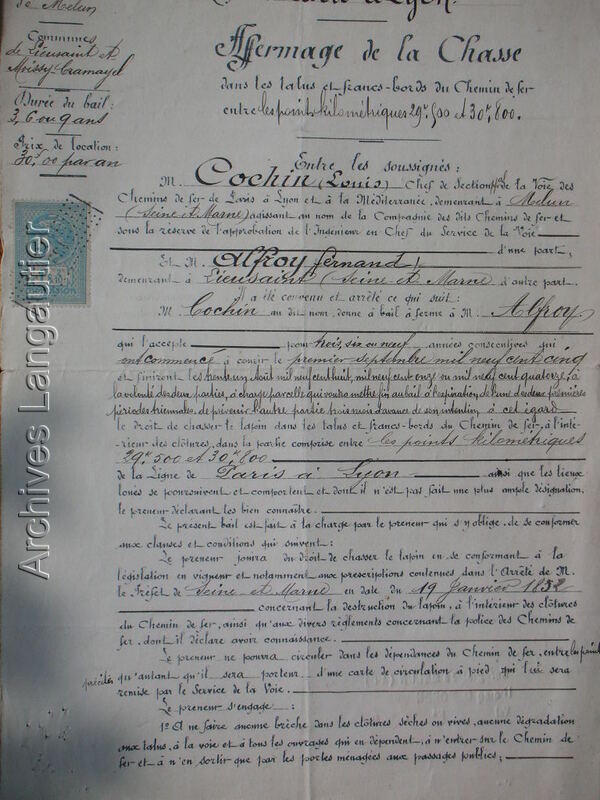 de Melun
Communes
de Lieusaint et
Moissy-Cramayel
Durée du bail:
3, 6 ou 9 ans
Prix de location:
30,00 par an
à Lyon.
Affermage de la Chasse
dans les talus et francs-bords du Chemin de fer
entre les points kilométriques 29k,500 et 30k,800.
Entre les soussignés:
M. Cochin (Louis) Chef de Section de la Voie des
Chemins de fer de Paris à Lyon et à la Méditerranée, demeurant à Melun
(Seine et Marne) agissant au nom de la Compagnie des dits Chemins de fer et
sous la réserve de l'approbation de l'Ingénieur en Chef du Service de la Voie
d'une part;
Et M. Alfroy fernand
demeurant à Lieusaint (Seine et Marne) d'autre part.
Il a été convenu et arrêté ce qui suit:
M. Cochin au dit nom, donne à bail à ferme à M. Alfroy
qui l'accepte pour trois, six ou neuf années consécutives qui
ont commencé à courir le premier septembre mil neuf cent cinq
et finiront les trente un Août mil neuf cent huit, mil neuf cent onze ou mil neuf cent quatorze, à
la volonté des deux parties, à charge par celle qui voudra mettre fin au bail à l'expiration de l'une des deux premières
périodes triennales, de prévenir l'autre partie trois mois d'avance de son intention, à cet égard
le droit de chasser le lapin dans les talus et francs-bords du Chemin de fer, à l'inté-
rieur des clôtures, dans la partie comprise entre les points kilométriques
29k,500 et 30k,800
de la Ligne de Paris à Lyon ainsi que les lieux
loués se poursuivent et comportent et dont il n'est pas fait une plus ample désignation,
le preneur déclarant les bien connaître.
Le présent bail est fait à la charge par le preneur qui s'y oblige, de se conformer
aux clauses et conditions qui suivent:
Le preneur jouira du droit de chasser le lapin en se conformant à la
législation en vigueur et notamment aux prescriptions contenues dans l'Arrêté de M.
le Préfet de Seine et Marne en date du 19 Janvier
concernant la destruction du lapin, à l'intérieur des clôtures
du Chemin de fer, ainsi qu'aux divers règlements concernant la police des Chemins de
fer, dont il déclare avoir connaissance.
Le preneur ne pourra circuler dans les dépendances du Chemin de fer, entre les points
précités qu'autant qu'il sera porteur d'une carte de circulation à pied qui lui sera
remise par le Service de la Voie.
Le preneur s'engage:
1° A ne faire aucune brèche dans les clôtures sèches ou vives, aucune dégradation
aux talus, à la voie et à tous les ouvrages qui en dépendent, à n'entrer sur le Chemin de
fer et à n'en sortir que par les portes ménagées aux passages publics;
Archives Langautier